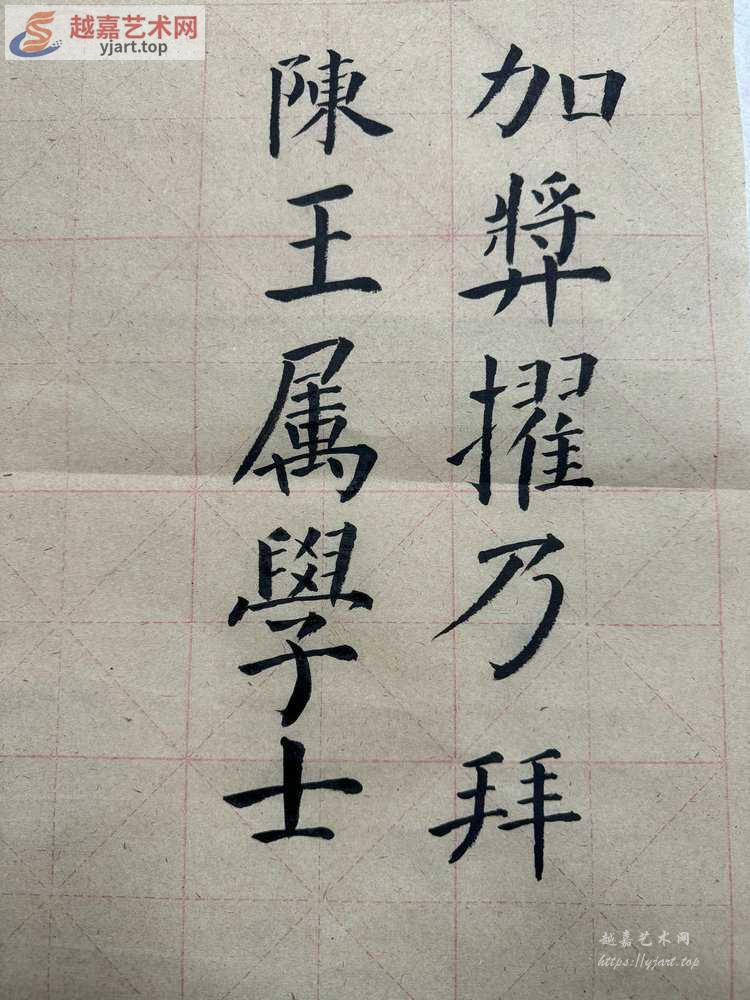 越嘉艺术网
yjart.top
加奬擢乃拜
陳王属學士
越嘉艺术网
https://yjart.top